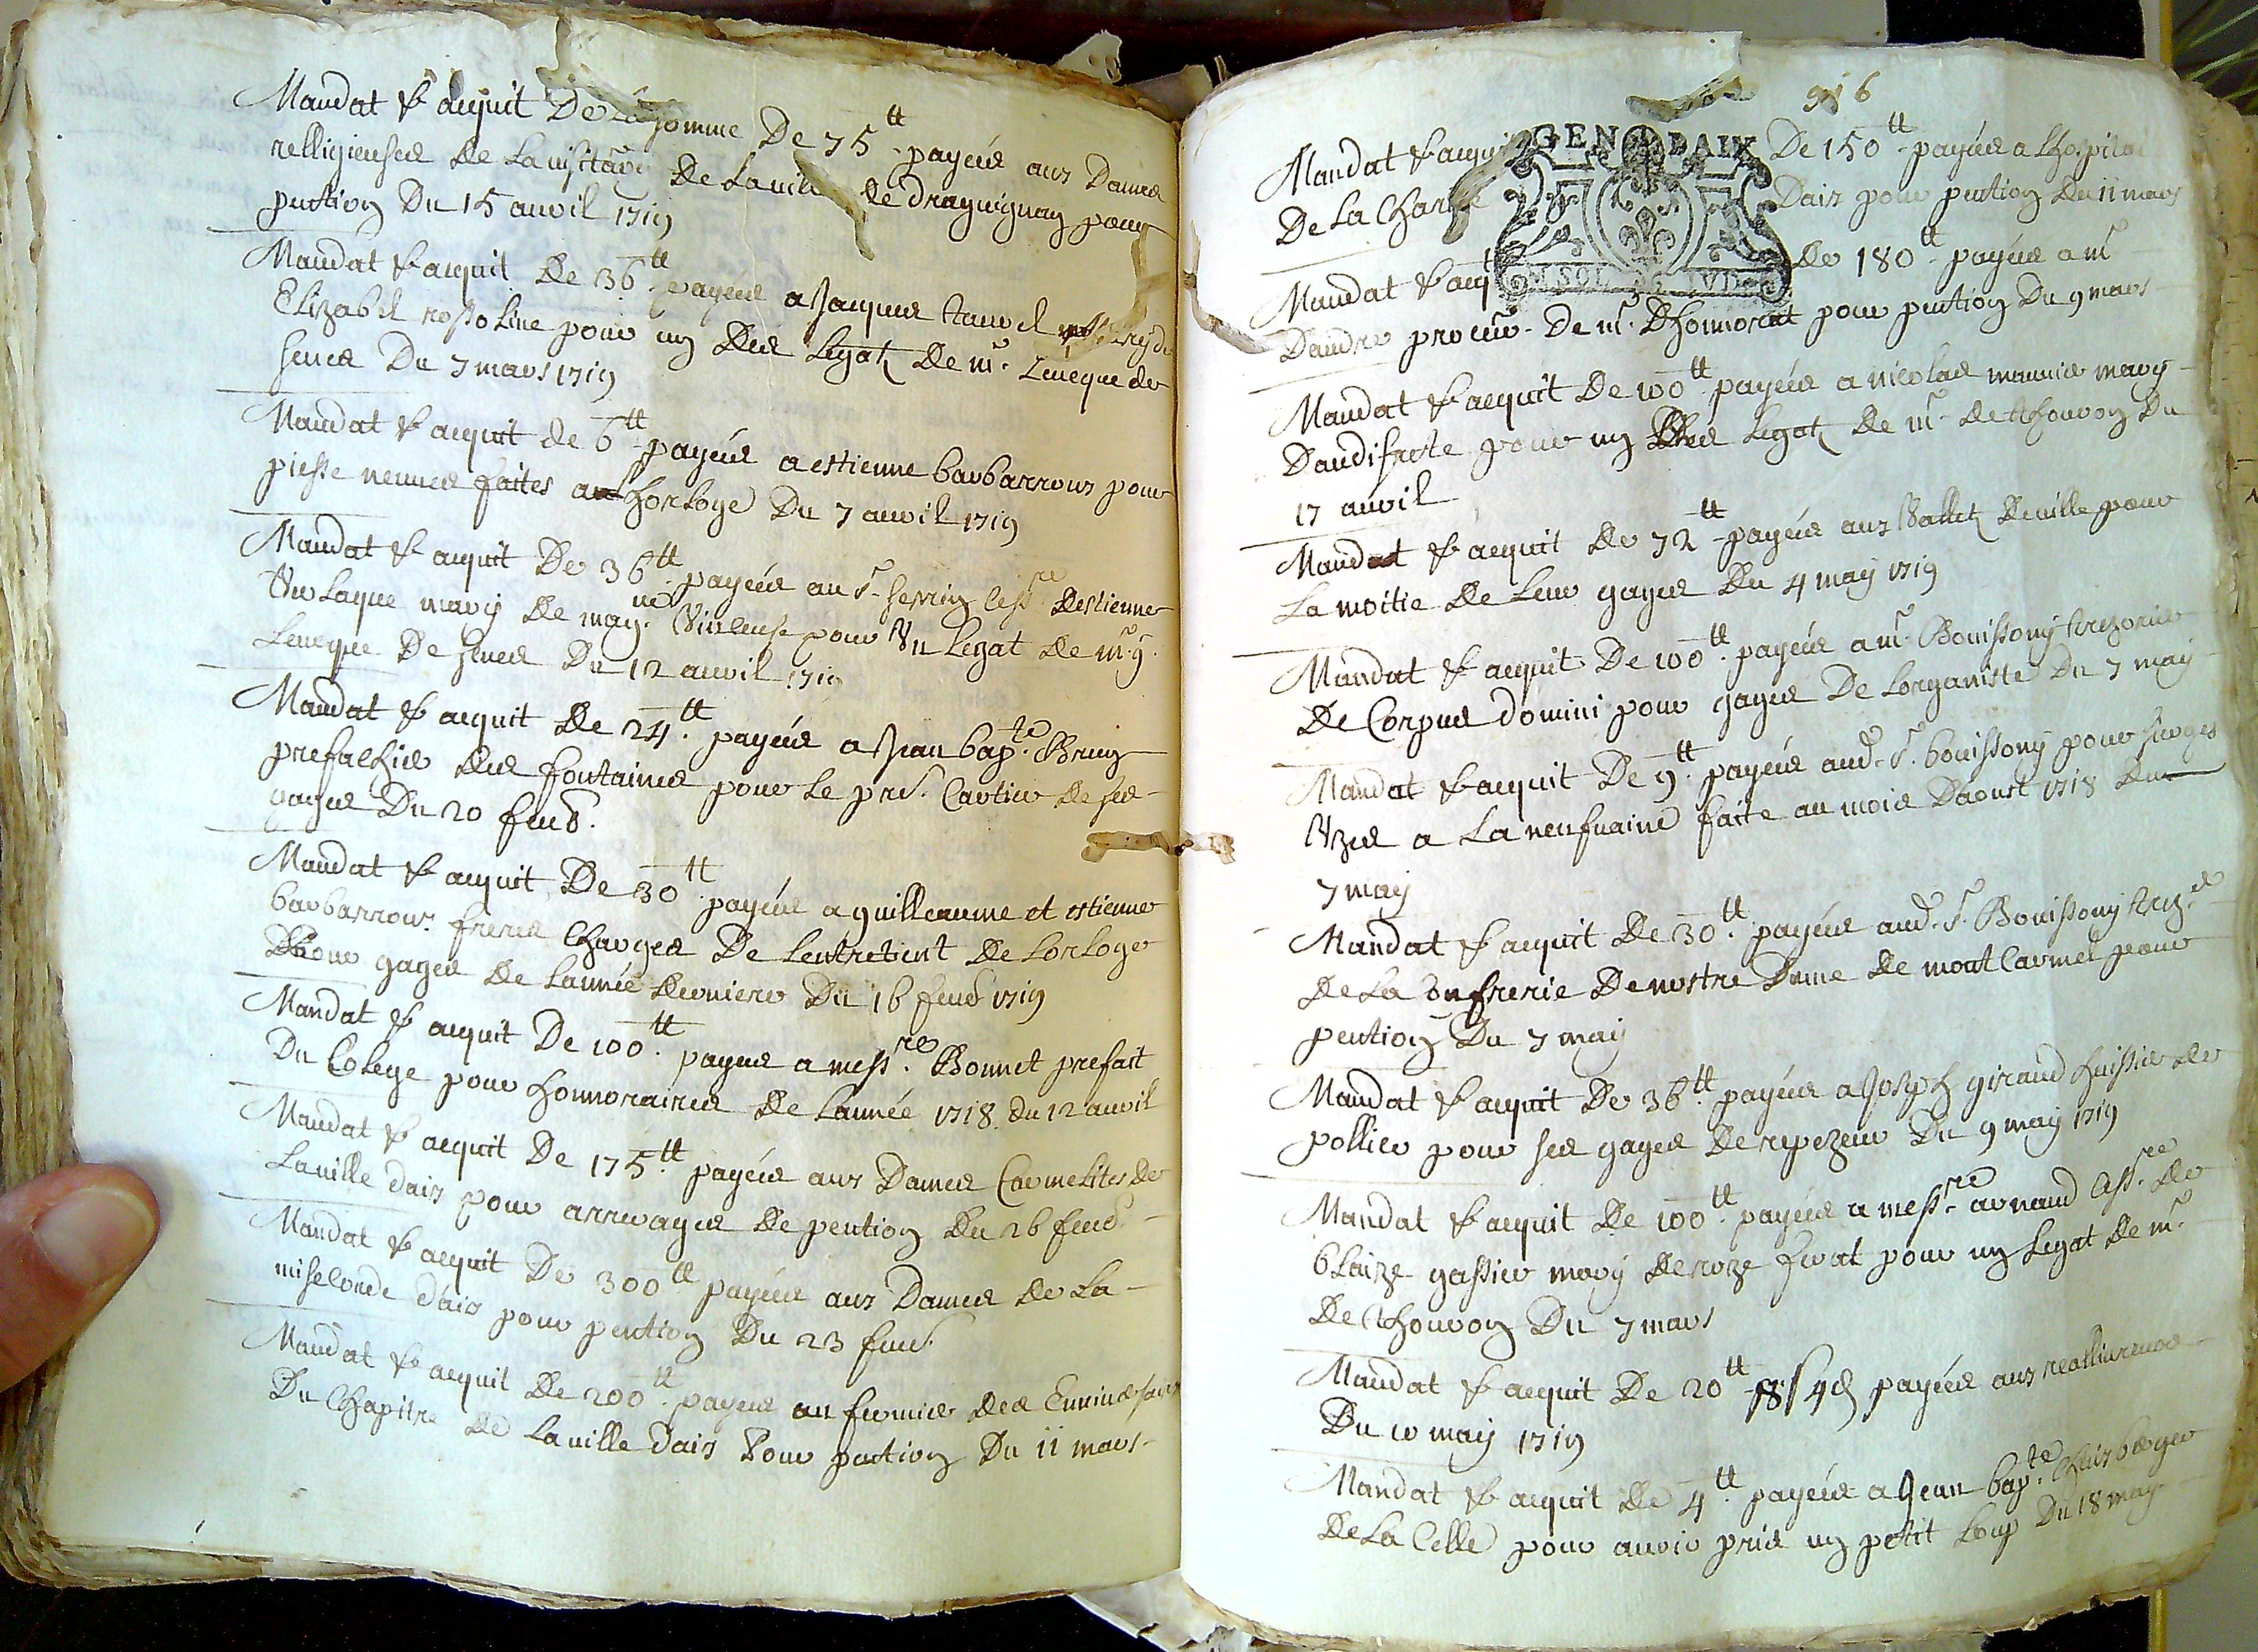 Mandat & acquit De La somme De 75 tt payées aux Dames
relligieuses de La visitaõn De La ville de draguignan pour
pention Du 15 auril 1719
Mandat & acquit De 36 tt payées a Jaques tauel
Elizabet rossoline pour un Des Legatz De mr. Leueque de
senes Du 7 mars 1719
Mandat & acquit de 6 tt payées a estienne barbarroux pour
piesse neuues faites a Lhorloge Du 7 auril 1719
Mandat & acquit De 36 tt payées au sr. serrin cessre Destienne
Laque mary De mag.ne Vieleuse pour Vn Legat De mgr.
Leueque De senes Du 12 auril 1719
Mandat & acquit De 24 tt payées a Jean bapte. Brun
prefachier des fontaines pour le pr. Cartier de ses
gages Du 20 feur.
Mandat & acquit De 30 tt payées a guilleaume et estienne
barbarroux freres Charges De Lentretient De Lorloge
Pour gages de Lannée derniere Du 16 feur 1719
Mandat & acquit De 100 tt payees a messre. Bonnet prefait
Du Colege pour honnoraires De Lannée 1718. du 12 auril
Mandat & acquit De 175 tt payées aux Dames Carmelites de
La uille daix pour arrerages de pention Du 26 feur.
Mandat & acquit De 300 tt payées aux Dames de La
miselorde daix pour pention Du 23 feur.
Mandat & acquit De 200 tt payées au fermier des
Du Chapitre de La uille daix Pour pention Du 11 mars
916
GEN DAIX
Mandat & acquit De 150 tt payées a Lhospital
De La Charité Daix pour pention Du 11 mars
M SOL IVD
Mandat & acq de 180 tt payées a mr
Dandre procur. De mr. Dhonnorat pour pention Du 9 mars
Mandat & acquit De 100 tt payées a nicolas maunier mary
Daudifrete pour un Des Legatz De mr. De thouron Du
17 auril
Mandat & acquit De 72 tt payées aux Valletz de uille pour
La moitie de Leur gages Du 4 may 1719
Mandat & acquit De 100 tt payées a mr. Bouissony trezorier
De Corpus domini pour gages De Lorganiste Du 7 may
Mandat & acquit De 9 tt payées aud. sr. bouissony pour sierges
Vzes a La neufuaine faite au mois Daoust 1718 Du
7 may
Mandat & acquit De 30 tt payées aud. sr. Bouissony trez.er
de La Confrerie De nostre Dame de mont Carmel pour
pention Du 7 may
Mandat & acquit De 36 tt payées a Joseph giraud huissier de
pollice pour ses gages De repezeur Du 9 may 1719
Mandat & acquit De 100 tt payées a messre arnaud cessre. de
blaize gassier mary de roze ferat pour un Legat De mr.
De thouron Du 7 mars
Mandat & acquit De 20 tt 18 s 4 d payées aux reallieurs
Du 10 may 1719
Mandat & acquit De 4 tt payées a Jean bapte. berger
De La Celle pour auoir pris un petit Loup Du 18 may